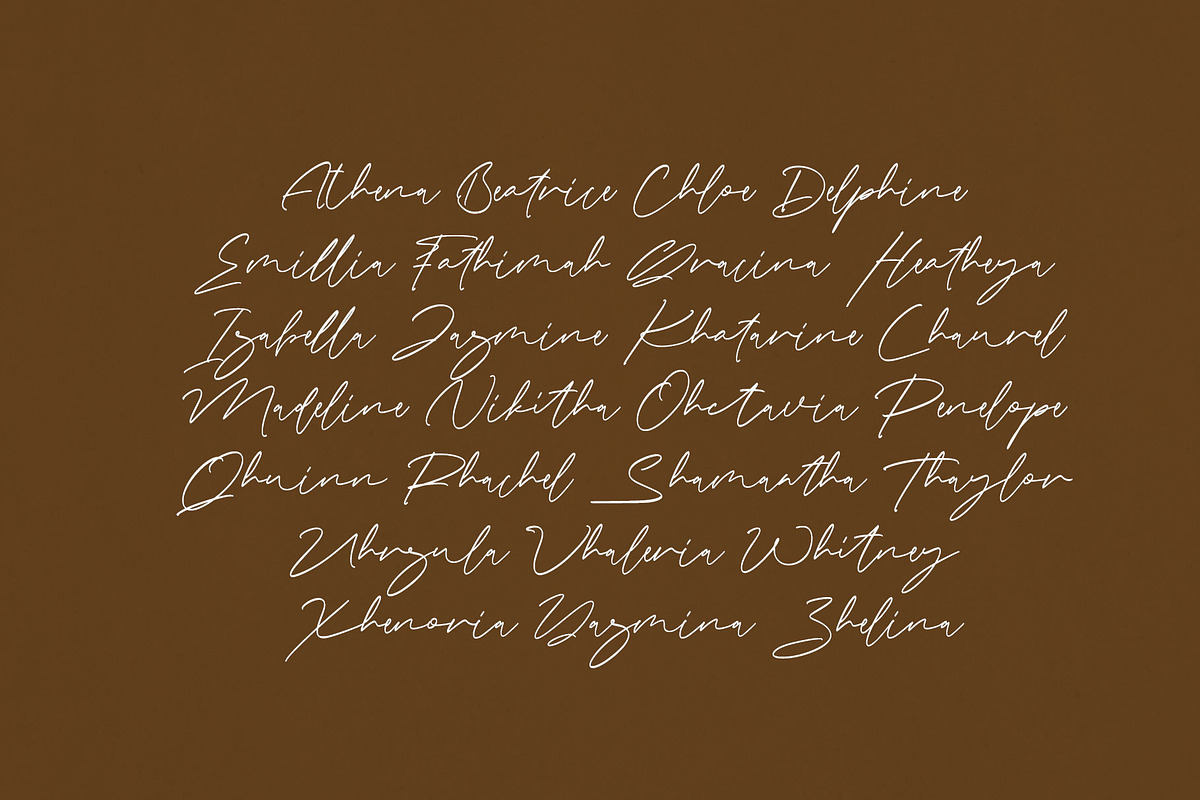 Athena Beatrice Chloe Delphine
Emillia Fathimah Gracina Heatheya
Izabella Jazmine Khatarine Chaurel
Madeline Nikitha Ohctavia Penelope
Qhuinn Rhachel Shamantha Thaylor
Uhrzula Vhaleria Whitney
Xhenoria Yazmina Zhelina